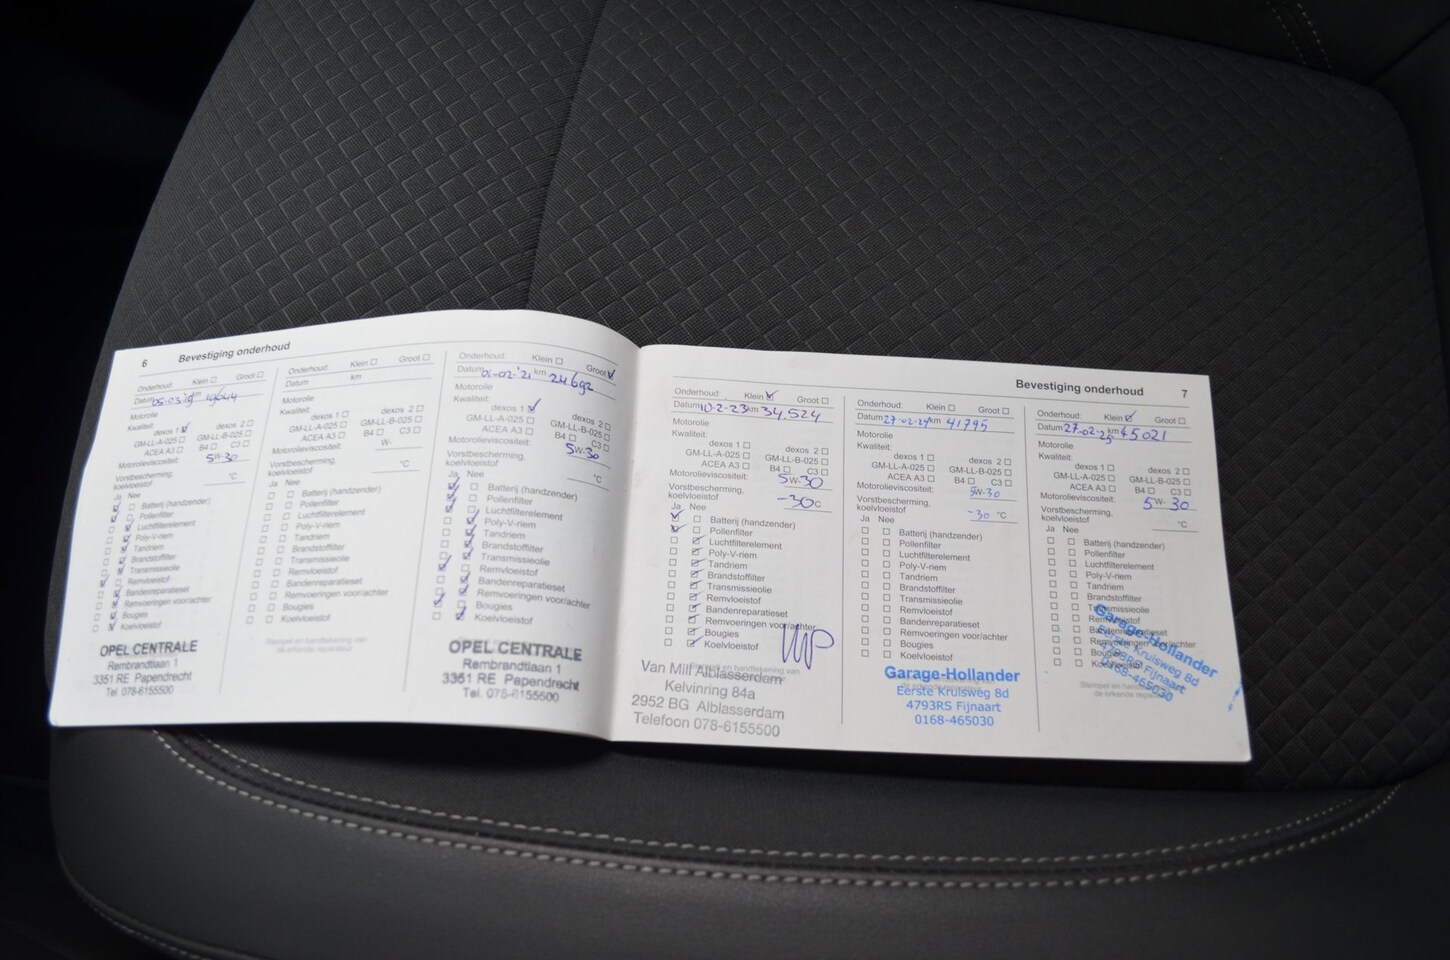 6 Bevestiging onderhoud
Onderhoud: Klein Groot
Datum 05-03-'19 km 19644
Motorolie
Kwaliteit:
dexos 1 dexos 2
GM-LL-A-025 GM-LL-B-025
ACEA A3 B4 C3
Motorolieviscositeit: 5W-30
Vorstbescherming,
koelvloeistof °C
Ja Nee
Batterij (handzender)
Pollenfilter
Luchtfilterelement
Poly-V-riem
Tandriem
Brandstoffilter
Transmissieolie
Remvloeistof
Bandenreparatieset
Remvoeringen voor/achter
Bougies
Koelvloeistof
OPEL CENTRALE
Rembrandtlaan 1
3351 RE Papendrecht
Tel. 078-6155500
Onderhoud: Klein Groot
Datum km
Motorolie
Kwaliteit:
dexos 1 dexos 2
GM-LL-A-025 GM-LL-B-025
ACEA A3 B4 C3
Motorolieviscositeit: W-
Vorstbescherming,
koelvloeistof °C
Ja Nee
Batterij (handzender)
Pollenfilter
Luchtfilterelement
Poly-V-riem
Tandriem
Brandstoffilter
Transmissieolie
Remvloeistof
Bandenreparatieset
Remvoeringen voor/achter
Bougies
Koelvloeistof
Stempel en handtekening van
de erkende reparateur
Onderhoud: Klein Groot
Datum 01-02-'21 km 24692
Motorolie
Kwaliteit:
dexos 1 dexos 2
GM-LL-A-025 GM-LL-B-025
ACEA A3 B4 C3
Motorolieviscositeit: 5W-30
Vorstbescherming,
koelvloeistof °C
Ja Nee
Batterij (handzender)
Pollenfilter
Luchtfilterelement
Poly-V-riem
Tandriem
Brandstoffilter
Transmissieolie
Remvloeistof
Bandenreparatieset
Remvoeringen voor/achter
Bougies
Koelvloeistof
OPEL CENTRALE
Rembrandtlaan 1
3351 RE Papendrecht
Tel. 078-6155500
Bevestiging onderhoud 7
Onderhoud: Klein Groot
Datum 10-2-23 km 34,524
Motorolie
Kwaliteit:
dexos 1 dexos 2
GM-LL-A-025 GM-LL-B-025
ACEA A3 B4 C3
Motorolieviscositeit: 5W-30
Vorstbescherming,
koelvloeistof -30 °C
Ja Nee
Batterij (handzender)
Pollenfilter
Luchtfilterelement
Poly-V-riem
Tandriem
Brandstoffilter
Transmissieolie
Remvloeistof
Bandenreparatieset
Remvoeringen voor/achter
Bougies
Koelvloeistof
Stempel en handtekening van
Van Mill Alblasserdam
Kelvinring 84a
2952 BG Alblasserdam
Telefoon 078-6155500
Onderhoud: Klein Groot
Datum 27-02-24 km 41795
Motorolie
Kwaliteit:
dexos 1 dexos 2
GM-LL-A-025 GM-LL-B-025
ACEA A3 B4 C3
Motorolieviscositeit: 5W-30
Vorstbescherming,
koelvloeistof -30 °C
Ja Nee
Batterij (handzender)
Pollenfilter
Luchtfilterelement
Poly-V-riem
Tandriem
Brandstoffilter
Transmissieolie
Remvloeistof
Bandenreparatieset
Remvoeringen voor/achter
Bougies
Koelvloeistof
Garage-Hollander
Eerste Kruisweg 8d
4793RS Fijnaart
0168-465030
Onderhoud: Klein Groot
Datum 27-02-25 km 45021
Motorolie
Kwaliteit:
dexos 1 dexos 2
GM-LL-A-025 GM-LL-B-025
ACEA A3 B4 C3
Motorolieviscositeit: 5W-30
Vorstbescherming,
koelvloeistof °C
Ja Nee
Batterij (handzender)
Pollenfilter
Luchtfilterelement
Poly-V-riem
Tandriem
Brandstoffilter
Transmissieolie
Remvloeistof
Bandenreparatieset
Remvoeringen voor/achter
Bougies
Koelvloeistof
Garage-Hollander
Eerste Kruisweg 8d
4793RS Fijnaart
0168-465030
Stempel en handtekening van
de erkende reparateur